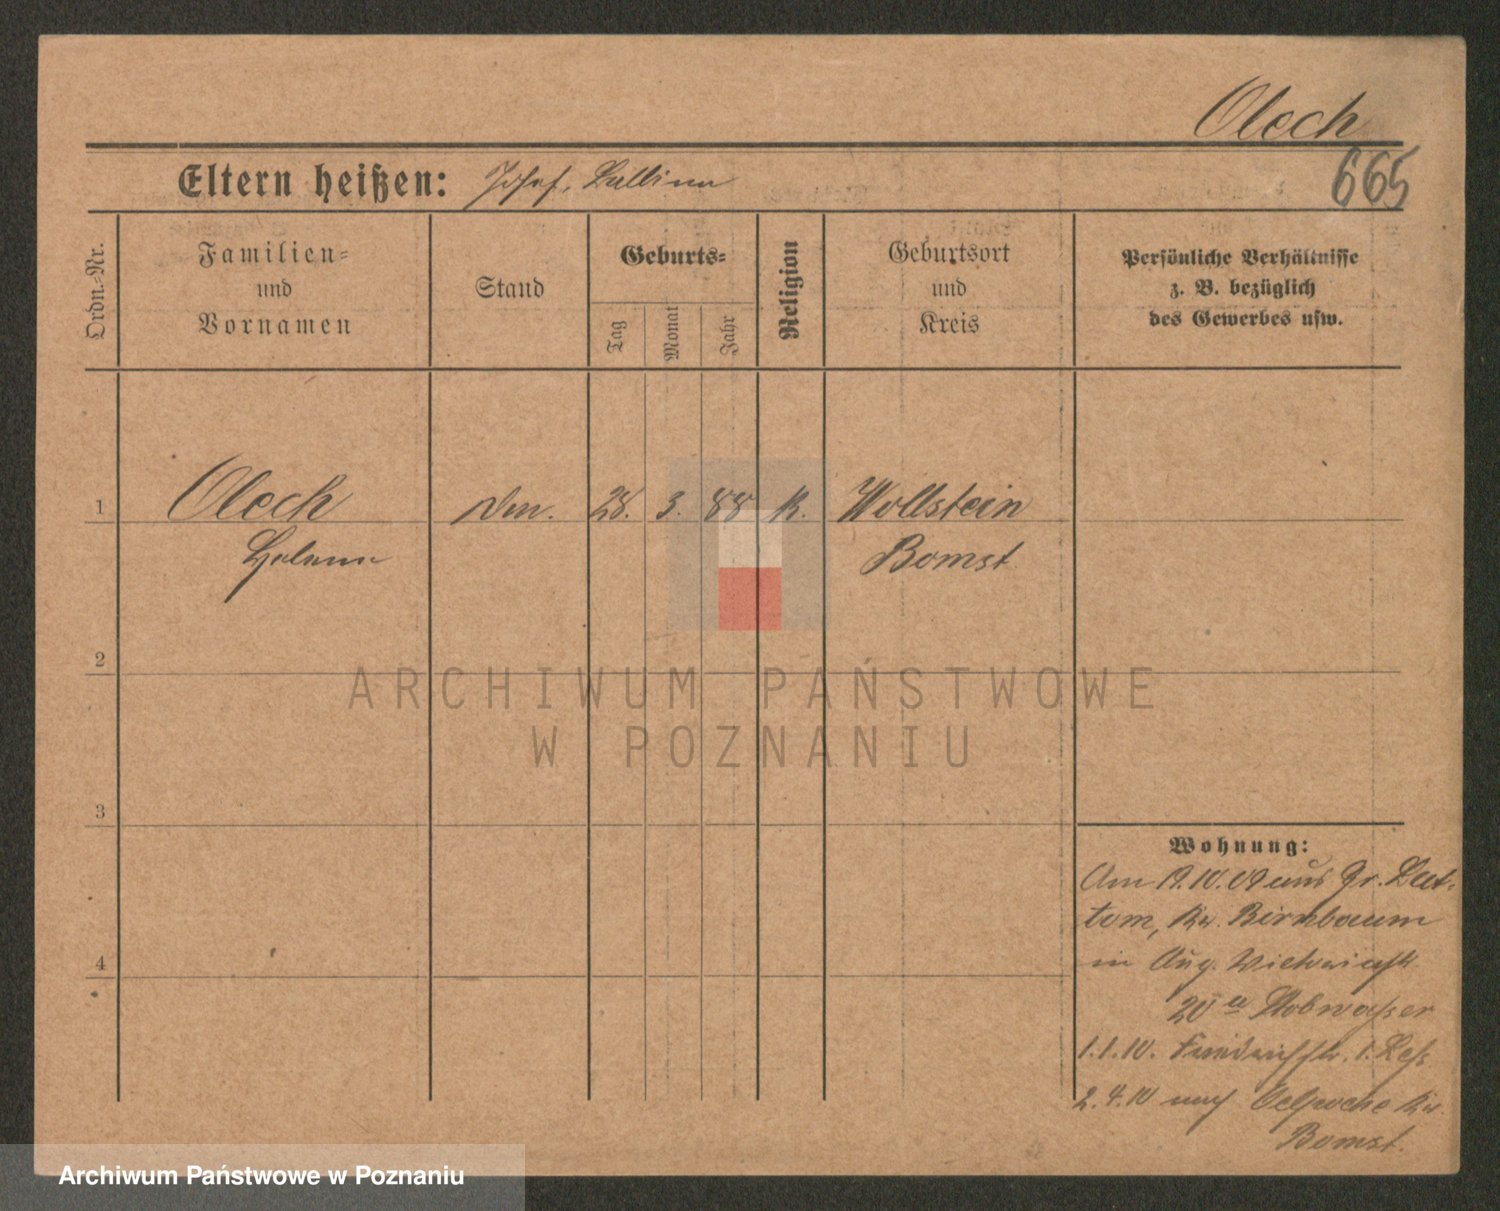 Olech
665
Eltern heißen: Josef, Balbina
Ordn.-Nr.
Familien= und Vornamen
Stand
Geburts=
Tag
Monat
Jahr
Religion
Geburtsort und Kreis
Persönliche Verhältnisse
z. B. bezüglich
des Gewerbes usw.
1
Olech
28. 3. 88 K.
Wollstein
Helena
Bomst
2
3
4
Wohnung:
Am 19.10.09 aus Gr. Lut-
tom, Kr. Birnbaum
in Aug.
20 a Stobwasser
1.1.10. Friedrichstr. 1.
2.4.10 nach Kr.
Bomst.
ARCHIWUM PAŃSTWOWE
W POZNANIU
Archiwum Państwowe w Poznaniu